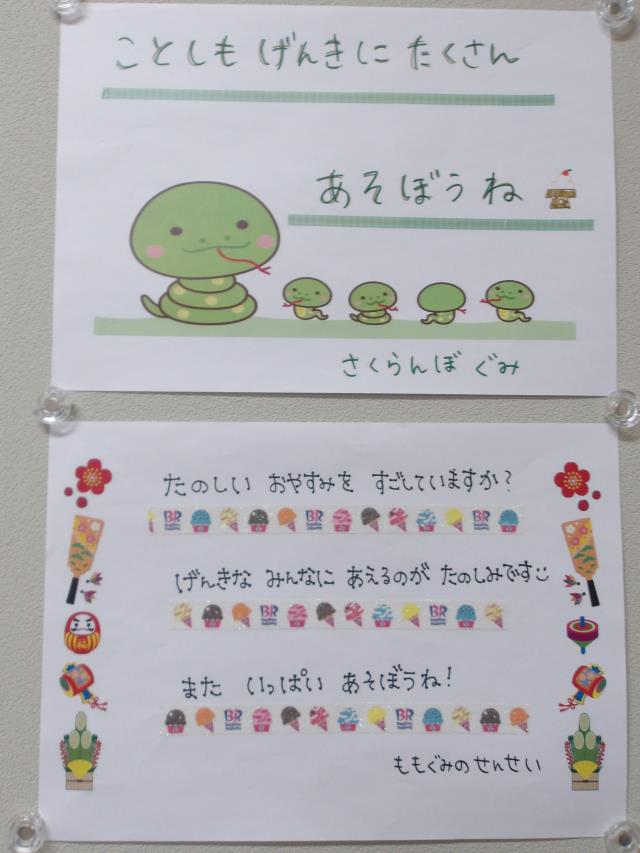 ことしも げんきに たくさん
あそぼうね
さくらんぼ ぐみ
たのしい おやすみを すごしていますか?
BR BR BR
げんきな みんなに あえるのが たのしみです
BR BR
また いっぱい あそぼうね!
BR BR
ももぐみのせんせい